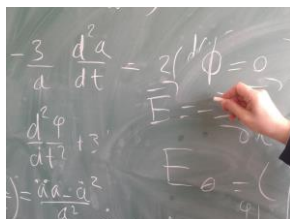 -3/a d²a/dt = 2(
ϕ = 0
E =
d²φ/dt² + 3
E_θ = (
) = äa - ȧ²/a²